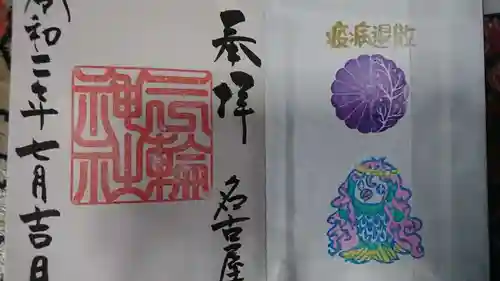 奉拝
名古屋
三輪
神社
令和二年七月吉日
疫病退散